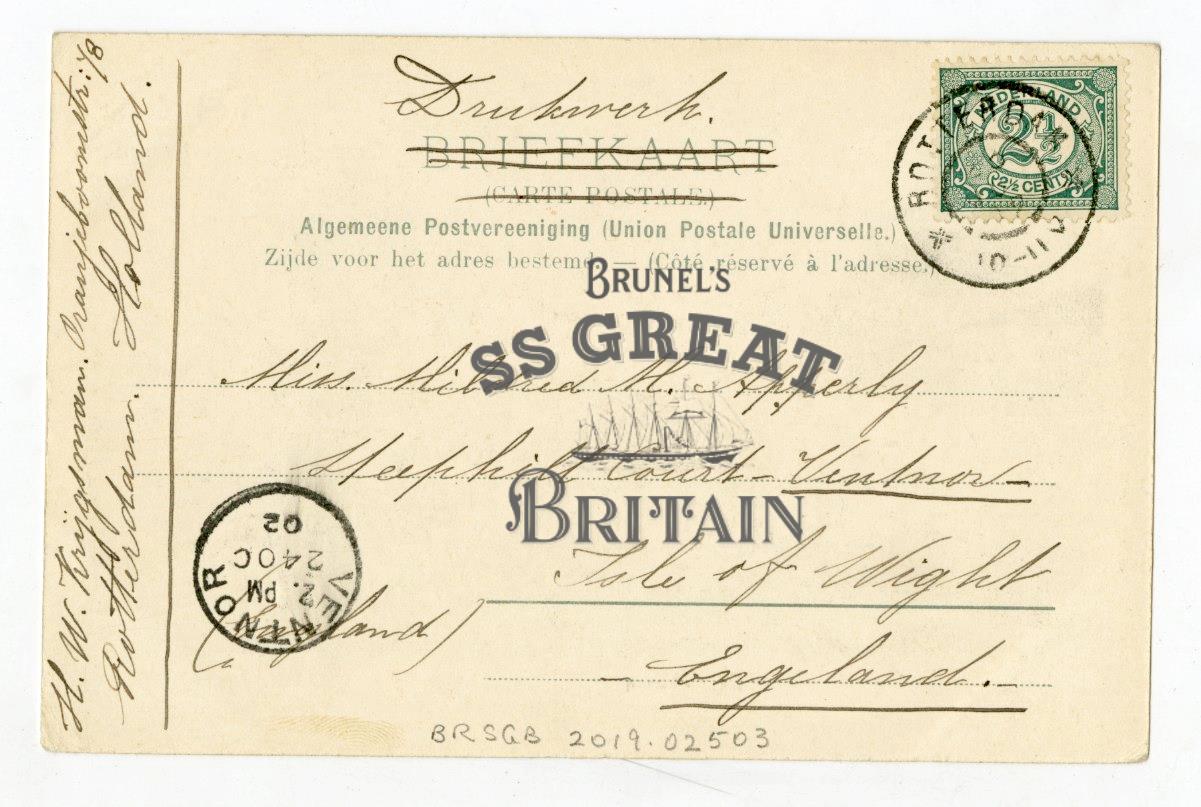 Drukwerk.
BRIEFKAART
(CARTE POSTALE.)
Algemeene Postvereeniging (Union Postale Universelle.)
Zijde voor het adres bestemd. — (Côté réservé à l'adresse.)
NEDERLAND
2½
2½ CENT
ROTTERDAM
10-11V
BRUNEL'S
SS GREAT
BRITAIN
Miss. Mildred M. Apperly
Steephill Court - Ventnor -
Isle of Wight
(England)
- Engeland. -
VENTNOR
2. PM
24 OC
02
H. W. Krijgsman. Oranjeboomstr: 78
Rotterdam. Holland.
BRSGB 2019.02503